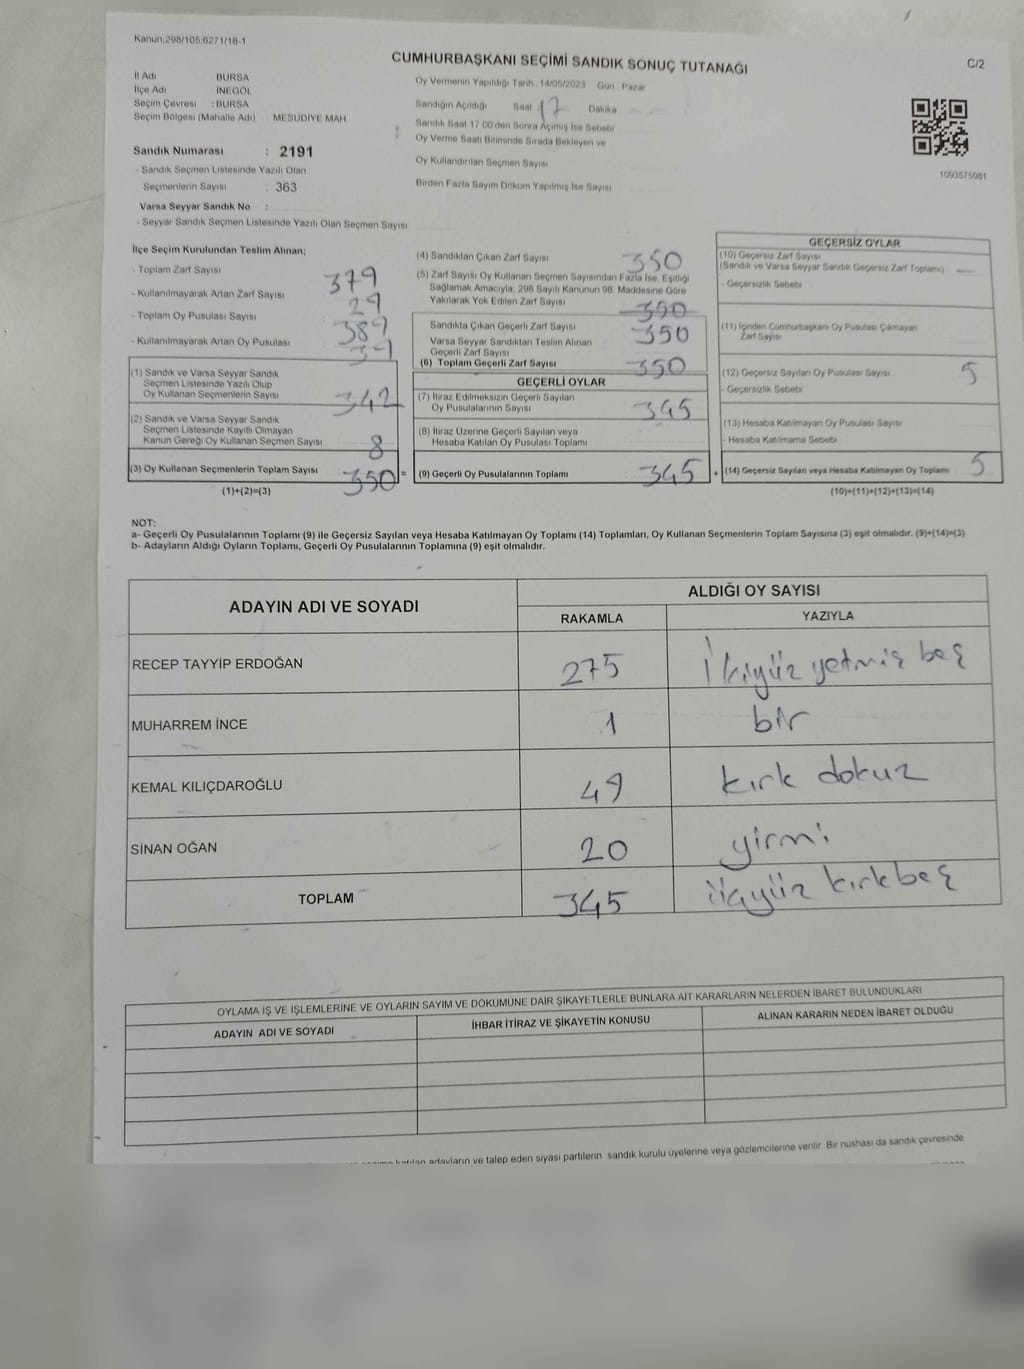 Kanun:298/105.6271/18-1
CUMHURBAŞKANI SEÇİMİ SANDIK SONUÇ TUTANAĞI
C/2
İl Adı BURSA
İlçe Adı İNEGÖL
Seçim Çevresi : BURSA
Seçim Bölgesi (Mahalle Adı) : MESUDİYE MAH.
Sandık Numarası : 2191
- Sandık Seçmen Listesinde Yazılı Olan
Seçmenlerin Sayısı : 363
Varsa Seyyar Sandık No :
- Seyyar Sandık Seçmen Listesinde Yazılı Olan Seçmen Sayısı
Oy Vermenin Yapıldığı Tarih : 14/05/2023 Gün : Pazar
Sandığın Açıldığı Saat 17 Dakika
Sandık Saat 17:00'den Sonra Açılmış İse Sebebi
Oy Verme Saati Bitiminde Sırada Bekleyen ve
Oy Kullandırılan Seçmen Sayısı
Birden Fazla Sayım Döküm Yapılmış İse Sayısı
1093575981
İlçe Seçim Kurulundan Teslim Alınan;
- Toplam Zarf Sayısı 379
- Kullanılmayarak Artan Zarf Sayısı 29
- Toplam Oy Pusulası Sayısı 389
- Kullanılmayarak Artan Oy Pusulası 39
(1) Sandık ve Varsa Seyyar Sandık
Seçmen Listesinde Yazılı Olup
Oy Kullanan Seçmenlerin Sayısı 342
(2) Sandık ve Varsa Seyyar Sandık
Seçmen Listesinde Kayıtlı Olmayan
Kanun Gereği Oy Kullanan Seçmen Sayısı 8
(3) Oy Kullanan Seçmenlerin Toplam Sayısı 350 =
(1)+(2)=(3)
(4) Sandıktan Çıkan Zarf Sayısı 350
(5) Zarf Sayısı Oy Kullanan Seçmen Sayısından Fazla İse, Eşitliği
Sağlamak Amacıyla, 298 Sayılı Kanunun 98. Maddesine Göre
Yakılarak Yok Edilen Zarf Sayısı 350
Sandıkta Çıkan Geçerli Zarf Sayısı 350
Varsa Seyyar Sandıktan Teslim Alınan
Geçerli Zarf Sayısı
(6) Toplam Geçerli Zarf Sayısı 350
GEÇERLİ OYLAR
(7) İtiraz Edilmeksizin Geçerli Sayılan
Oy Pusulalarının Sayısı 345
(8) İtiraz Üzerine Geçerli Sayılan veya
Hesaba Katılan Oy Pusulası Toplamı
(9) Geçerli Oy Pusulalarının Toplamı 345 +
GEÇERSİZ OYLAR
(10) Geçersiz Zarf Sayısı
(Sandık ve Varsa Seyyar Sandık Geçersiz Zarf Toplamı)
- Geçersizlik Sebebi
(11) İçinden Cumhurbaşkanı Oy Pusulası Çıkmayan
Zarf Sayısı
(12) Geçersiz Sayılan Oy Pusulası Sayısı 5
- Geçersizlik Sebebi
(13) Hesaba Katılmayan Oy Pusulası Sayısı
- Hesaba Katılmama Sebebi
(14) Geçersiz Sayılan veya Hesaba Katılmayan Oy Toplamı 5
(10)+(11)+(12)+(13)=(14)
NOT:
a- Geçerli Oy Pusulalarının Toplamı (9) ile Geçersiz Sayılan veya Hesaba Katılmayan Oy Toplamı (14) Toplamları, Oy Kullanan Seçmenlerin Toplam Sayısına (3) eşit olmalıdır. (9)+(14)=(3)
b- Adayların Aldığı Oyların Toplamı, Geçerli Oy Pusulalarının Toplamına (9) eşit olmalıdır.
ADAYIN ADI VE SOYADI
ALDIĞI OY SAYISI
RAKAMLA YAZIYLA
RECEP TAYYİP ERDOĞAN 275 İkiyüz yetmiş beş
MUHARREM İNCE 1 bir
KEMAL KILIÇDAROĞLU 49 kırk dokuz
SİNAN OĞAN 20 yirmi
TOPLAM 345 üçyüz kırkbeş
OYLAMA İŞ VE İŞLEMLERİNE VE OYLARIN SAYIM VE DÖKÜMÜNE DAİR ŞİKAYETLERLE BUNLARA AİT KARARLARIN NELERDEN İBARET BULUNDUKLARI
ADAYIN ADI VE SOYADI İHBAR İTİRAZ VE ŞİKAYETİN KONUSU ALINAN KARARIN NEDEN İBARET OLDUĞU
katılan adayların ve talep eden siyasi partilerin sandık kurulu üyelerine veya gözlemcilerine verilir. Bir nüshası da sandık çevresinde